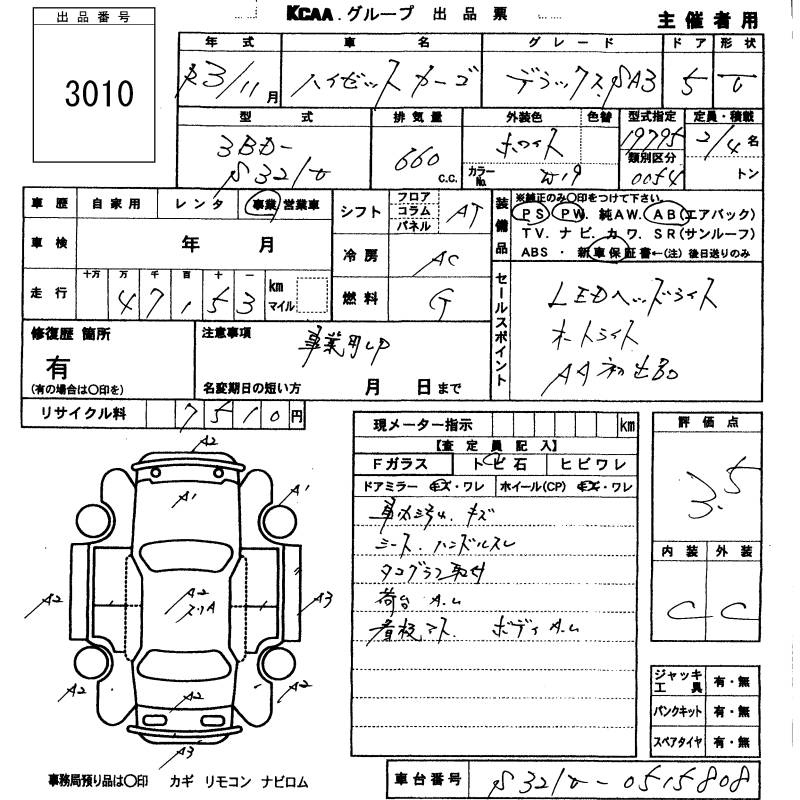 KCAA.グループ 出品票
主催者用
出品番号
3010
年式 車名 グレード ドア 形状
R3/11月 ハイゼットカーゴ デラックスSA3 5 V
型式 排気量 外装色 色替 型式指定 定員・積載
3BD- S321V 660 c.c. ホワイト カラーNo. W19 19795 類別区分 0054 2/4名 トン
車歴 自家用 レンタ 事業 営業車
車検 年 月
走行 十万 万 千 百 十 一
4 7,1 5 3 km マイル
シフト フロア コラム パネル AT
冷房 AC
燃料 G
装備品 ※純正のみ〇印をつけて下さい。
PS PW 純AW. AB(エアバッグ)
TV. ナビ. カワ. SR(サンルーフ)
ABS ・ 新車保証書←(注) 後日送りのみ
セールスポイント
LEDヘッドライト
オートライト
AA初出品
修復歴 箇所
有
(有の場合は〇印を)
注意事項
事業用UP
名変期日の短い方 月 日まで
リサイクル料 7510円
現メーター指示 km
【査定員記入】
Fガラス トビ石 ヒビワレ
ドアミラー キズ・ワレ ホイール(CP) キズ・ワレ
シート、ハンドルスレ
タコグラフ取付
荷台 A.U
看板アト ボディA.U
評価点
3.5
内装 外装
C C
ジャッキ工具 有・無
パンクキット 有・無
スペアタイヤ 有・無
A2
A1
A1
A2
A2
スリA
A3
A2
A2
A2
A3
事務局預り品は〇印 カギ リモコン ナビロム
車台番号 S321V-0515808